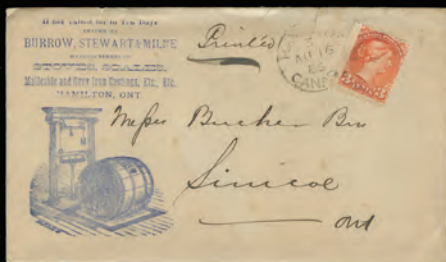 If not called for in Ten Days
RETURN TO
BURROW, STEWART & MILNE
MANUFACTURERS OF
STOVES, SCALES,
Malleable and Grey Iron Castings, Etc., Etc.
HAMILTON, ONT
Printed
16
CAN
Messrs Bros
Simcoe
Ont